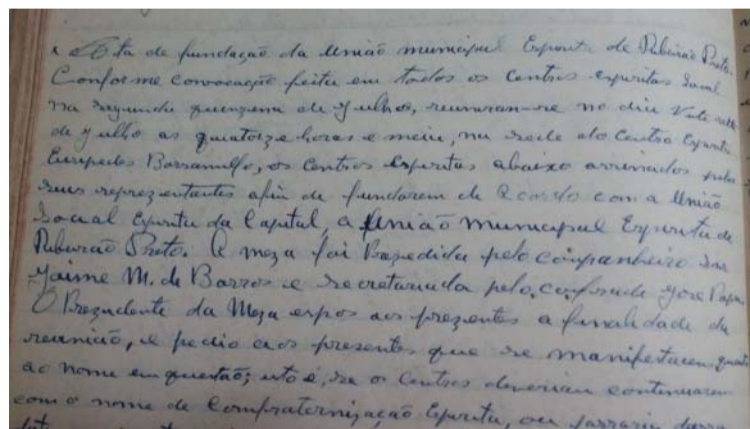 Ata de fundação da União municipal Espirita de Ribeirão Preto.
Conforme convocação feita em todos os Centros espiritas local
na segunda quinzena de Julho, reuniram-se no dia Vinte
de Julho as quatorze horas e meia, na sede do Centro Espirita
Euripedes Barsanulfo, os Centros Espiritas abaixo assinados pelos
seus reprezentantes afim de fundarem de acordo com a União
Social Espirita da Capital, a União municipal Espirita de
Ribeirão Preto. A meza foi Prezedida pelo companheiro Snr
Jaime M. de Barros e secretariada pelo confrade José Papa
O Prezidente da Meza expos aos prezentes a finalidade da
reunião, e pedio aos presentes que se manifestacem quanto
ao nome em questão; isto é, se os Centros deveriam continuarem
com o nome de Comfraternização Espirita, ou